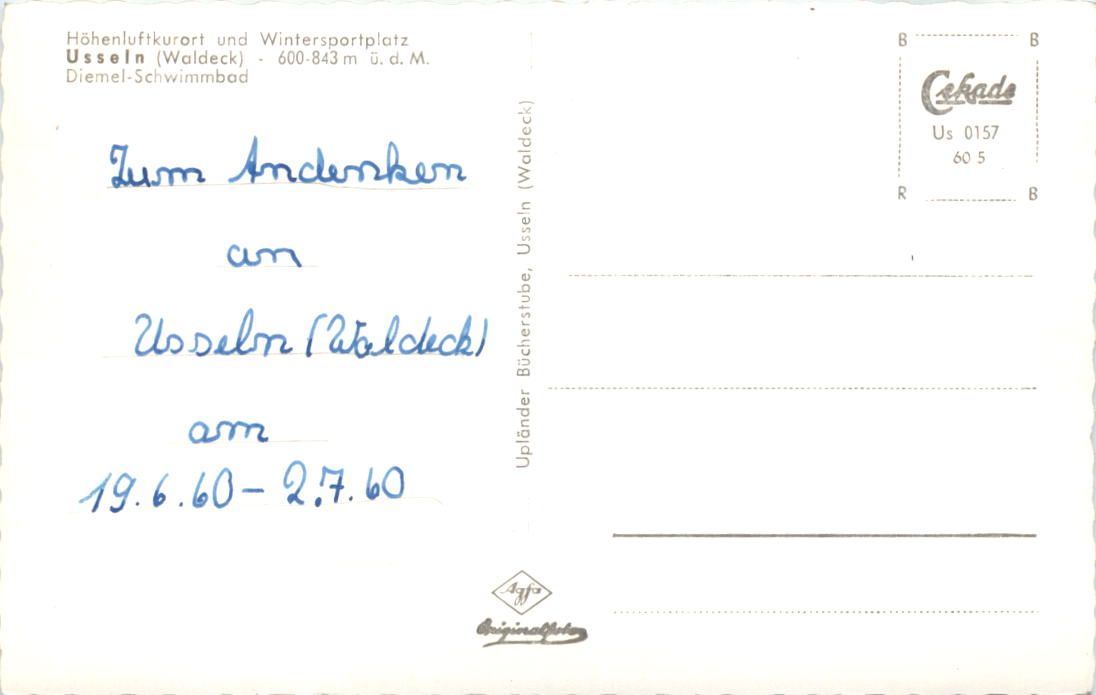 Höhenluftkurort und Wintersportplatz
Usseln (Waldeck) - 600-843 m ü. d. M.
Diemel-Schwimmbad
Zum Andenken
an
Usseln (Waldeck)
am
19.6.60 - 2.7.60
Upländer Bücherstube, Usseln (Waldeck)
B B
Cekade
Us 0157
60 5
R B
Agfa
Originalfoto